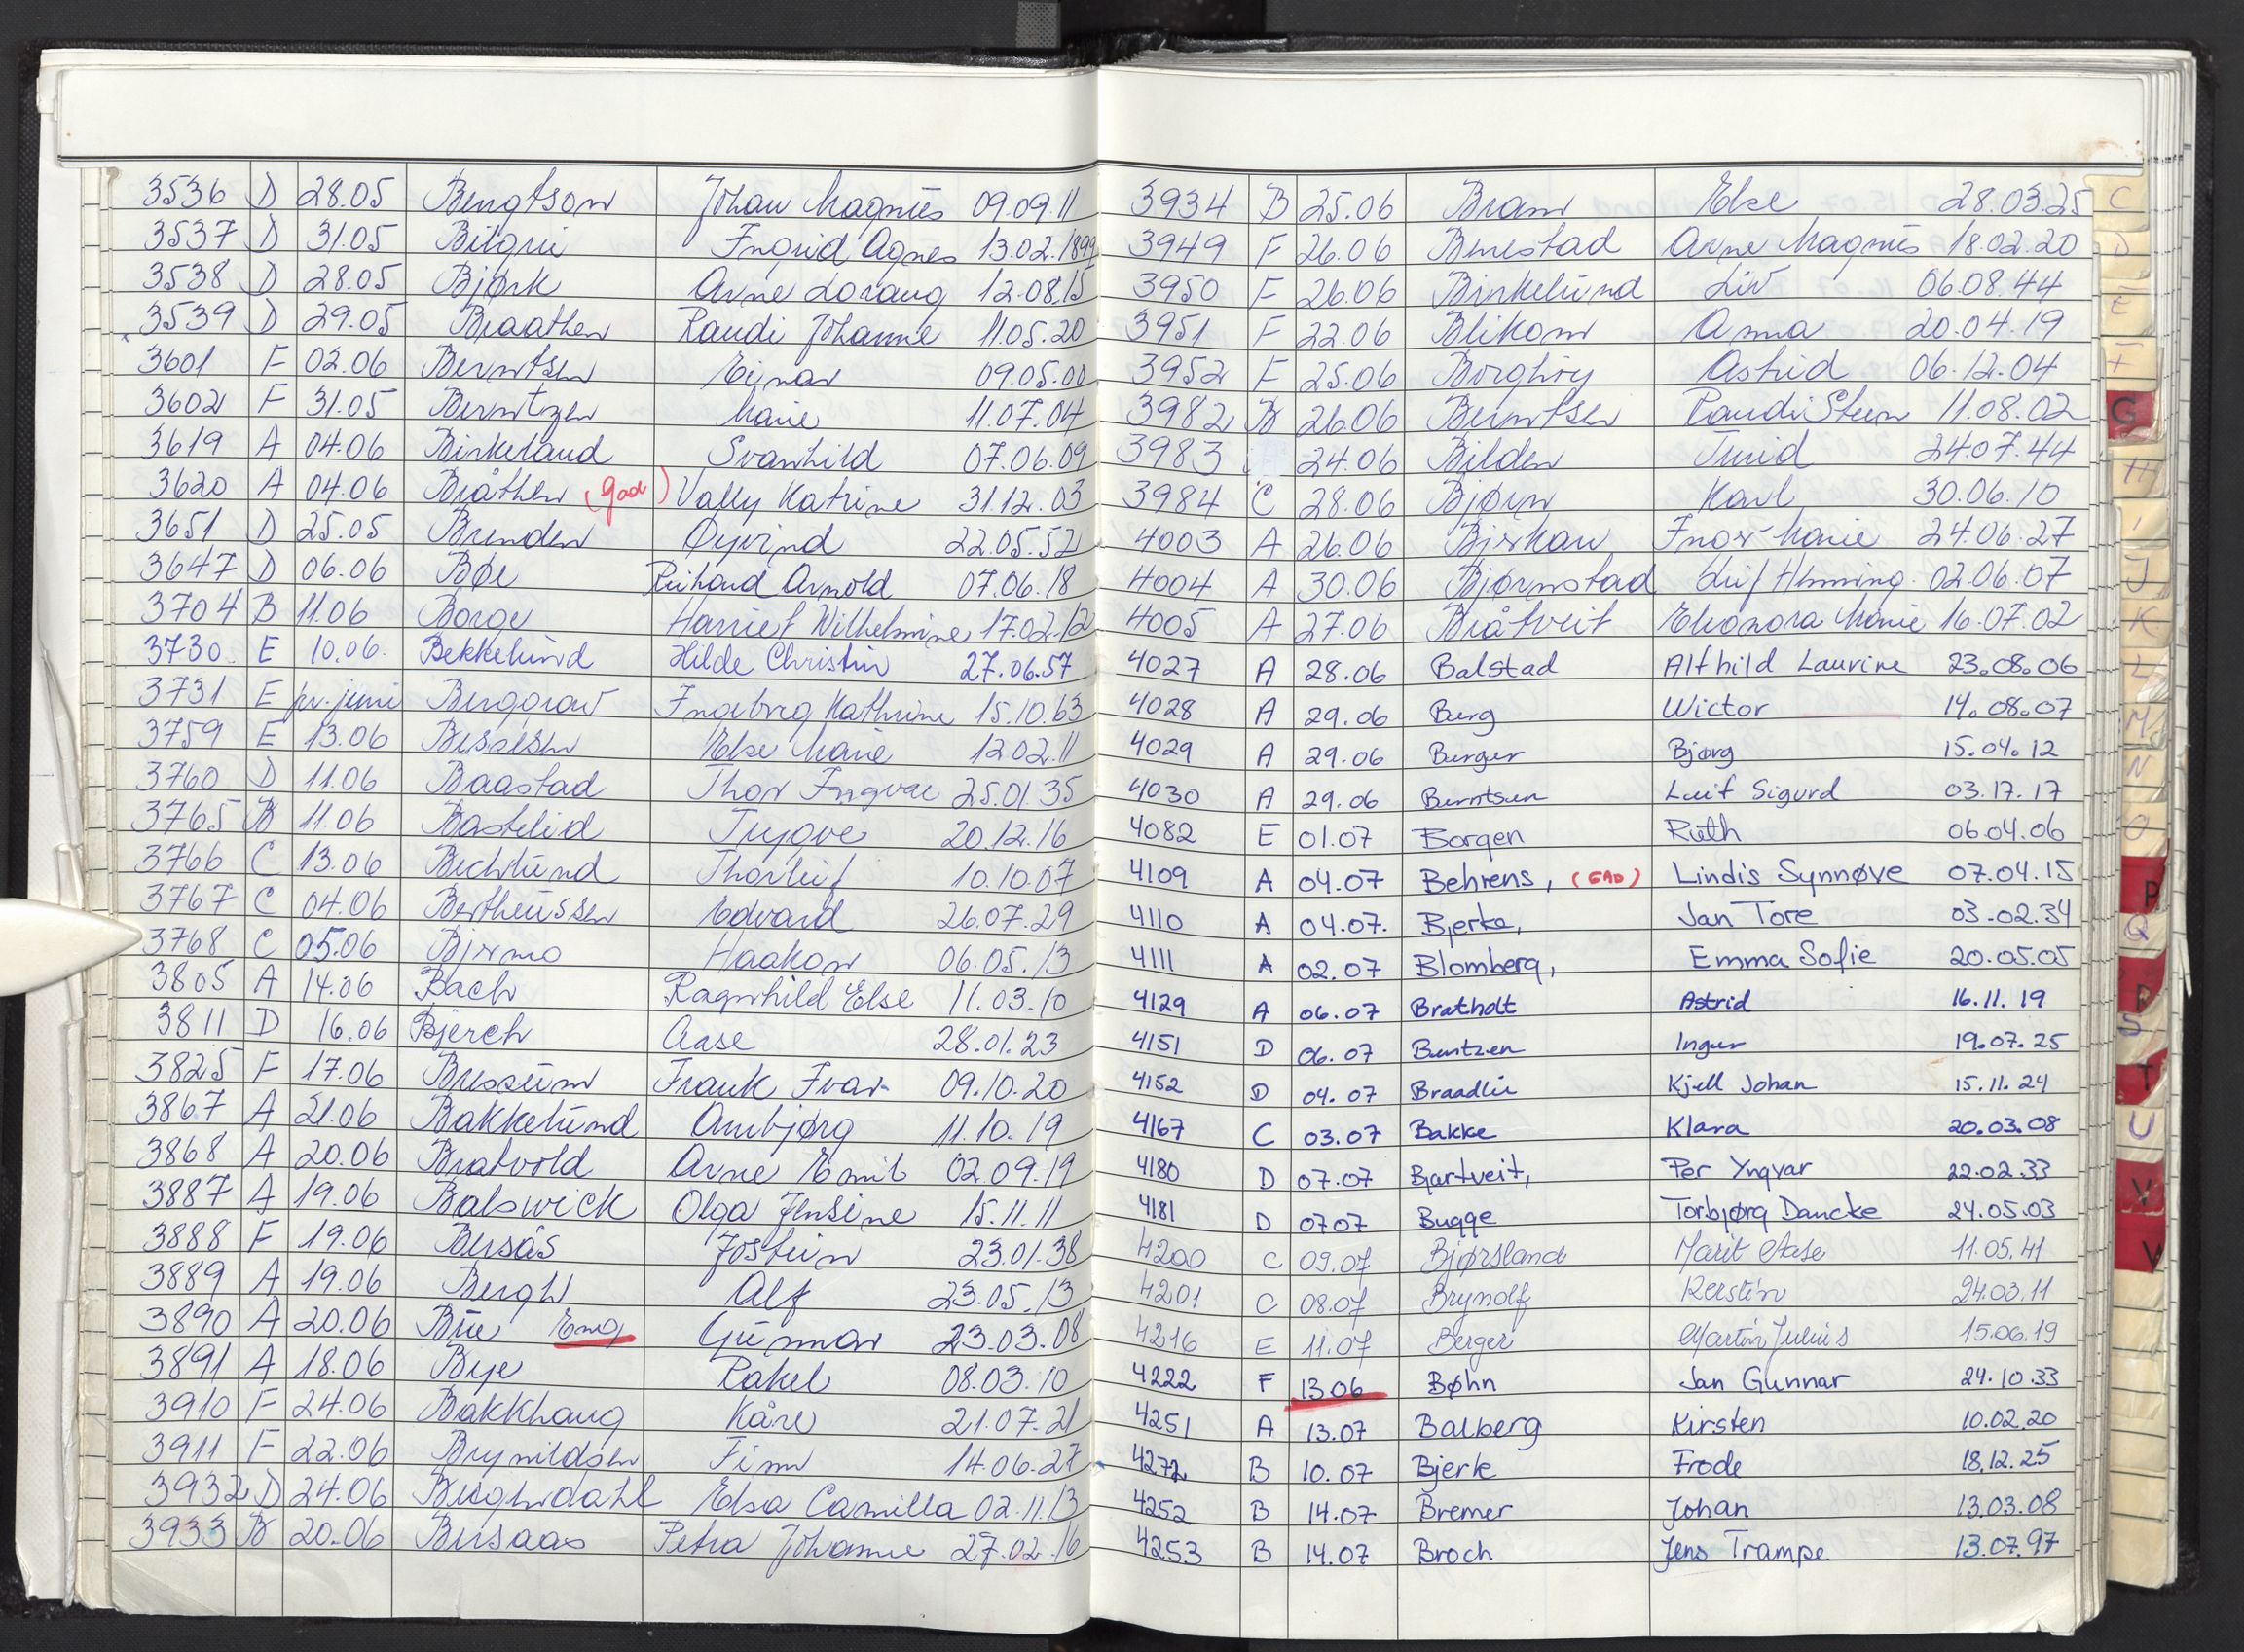 3536 D 28.05 Bengtson Johan Magnus 09.09.11
3537 D 31.05 Bilgrii Ingrid Agnes 13.02.1899
3538 D 28.05 Bjørk Arne Lorang 12.08.15
3539 D 29.05 Braathen Randi Johanne 11.05.20
3601 F 02.06 Berntsen Einar 09.05.00
3602 F 31.05 Berntzen Marie 11.07.04
3619 A 04.06 Birkeland Svanhild 07.06.09
3620 A 04.06 Bråthen (gad) Vally Katrine 31.12.03
3651 D 25.05 Brenden Øyvind 22.05.52
3647 D 06.06 Bøe Richard Arnold 07.06.18
3704 B 11.06 Borge Harriet Wilhelmine 17.02.12
3730 E 10.06. Bekkelund Hilde Christin 27.06.57
3731 E pr. juni Berggrav Ingeborg Kathrine 15.10.63
3759 E 13.06 Bessesen Else Marie 12.02.11
3760 D 11.06 Baastad Thor Ingvar 25.01.35
3765 B 11.06 Bastelid Trygve 20.12.16
3766 C 13.06 Bechlund Thorleif 10.10.07
3767 C 04.06 Bertheussen Edvard 26.07.29
3768 C 05.06 Bjermo Haakon 06.05.13
3805 A 14.06 Bach Ragnhild Else 11.03.10
3811 D 16.06 Bjerch Aase 28.01.23
3825 F 17.06 Bressum Frank Ivar 09.10.20
3867 A 21.06 Bakkelund Annbjørg 11.10.19
3868 A 20.06 Bratvold Arne Emil 02.09.19
3887 A 19.06 Balswick Olga Jensine 15.11.11
3888 F 19.06 Bersås Jostein 23.01.38
3889 A 19.06 Bergh Alf 23.05.13
3890 A 20.06 Bue Eng Gunnar 23.03.08
3891 A 18.06 Bye Rakel 08.03.10
3910 F 24.06 Bakkhaug Kåre 21.07.21
3911 F 22.06 Brynildsen Finn 14.06.27
3932 D 24.06 Berghrdahl Elsa Camilla 02.11.13
3933 B 20.06 Bersaas Petra Johanne 27.02.16
3934 B 25.06 Bram Else 28.03.25
3949 F 26.06 Benestad Arne Magnus 18.02.20
3950 F 26.06 Birkelund Liv 06.08.44
3951 F 22.06 Blikom Anna 20.04.19
3952 F 25.06 Borghøy Astrid 06.12.04
3982 B 26.06 Berntsen Randi Steen 11.08.02
3983 24.06 Bilden Turid 24.07.44
3984 C 28.06 Bjørn Karl 30.06.10
4003 A 26.06 Bjerkan Inger-Marie 24.06.27
4004 A 30.06 Bjørnstad Leif Henning 02.06.07
4005 A 27.06 Bråtveit Elconora Marie 16.07.02
4027 A 28.06 Balstad Alfhild Laurine 23.08.06
4028 A 29.06 Berg Wictor 14.08.07
4029 A 29.06 Berger Bjørg 15.04.12
4030 A 29.06 Berntsen Leif Sigurd 03.17.17
4082 E 01.07 Borgen Ruth 06.04.06
4109 A 04.07 Behrens, (GAD) Lindis Synnøve 07.04.15
4110 A 04.07. Bjerke, Jan Tore 03.02.34
4111 A 02.07 Blomberg, Emma Sofie 20.05.05
4129 A 06.07 Bratholt Astrid 16.11.19
4151 D 06.07 Berntzen Inger 19.07.25
4152 D 04.07 Braadlie Kjell Johan 15.11.24
4167 C 03.07 Bakke Klara 20.03.08
4180 D 07.07 Bjartveit, Per Yngvar 22.02.33
4181 D 0707 Bugge Torbjørg Dancke 24.05.03
4200 C 09.07 Bjørsland Marit Aase 11.05.41
4201 C 08.07 Brynolf Kerstin 24.03.11
4216 E 11.07 Berger Martin Julius 15.06.19
4222 F 13.06 Bøhn Jan Gunnar 24.10.33
4251 A 13.07 Balberg Kirsten 10.02.20
4272 B 10.07 Bjerk Frode 18.12.25
4252 B 14.07 Bremer Johan 13.03.08
4253 B 14.07 Broch Jens Trampe 13.07.97
C
D
E
F
G
H
I
J
K
L
M
N
O
P
Q
R
S
T
U
V